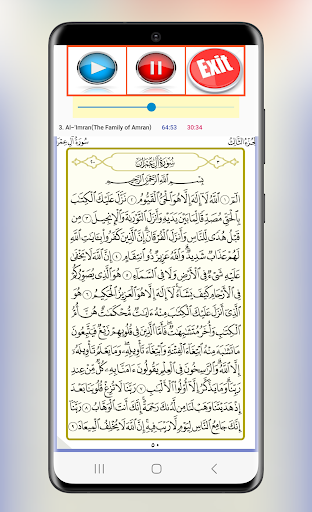 Exit
3. Al-'Imran(The Family of Amran) 64:53 30:34
الجُزْءُ الثَّالِثُ سُورَةُ آلِ عِمْرَ
سُورَةُ آلِ عِمْرَانَ
بِسْمِ اللَّهِ الرَّحْمَٰنِ الرَّحِيمِ
الٓمٓ ١ ٱللَّهُ لَآ إِلَٰهَ إِلَّا هُوَ ٱلْحَىُّ ٱلْقَيُّومُ ٢ نَزَّلَ عَلَيْكَ ٱلْكِتَٰبَ
بِٱلْحَقِّ مُصَدِّقًا لِّمَا بَيْنَ يَدَيْهِ وَأَنزَلَ ٱلتَّوْرَىٰةَ وَٱلْإِنجِيلَ ٣ مِن
قَبْلُ هُدًى لِّلنَّاسِ وَأَنزَلَ ٱلْفُرْقَانَ إِنَّ ٱلَّذِينَ كَفَرُوا۟ بِـَٔايَٰتِ ٱللَّهِ
لَهُمْ عَذَابٌ شَدِيدٌ وَٱللَّهُ عَزِيزٌ ذُو ٱنتِقَامٍ ٤ إِنَّ ٱللَّهَ لَا يَخْفَىٰ
عَلَيْهِ شَىْءٌ فِى ٱلْأَرْضِ وَلَا فِى ٱلسَّمَآءِ ٥ هُوَ ٱلَّذِى يُصَوِّرُكُمْ
فِى ٱلْأَرْحَامِ كَيْفَ يَشَآءُ لَآ إِلَٰهَ إِلَّا هُوَ ٱلْعَزِيزُ ٱلْحَكِيمُ ٦ هُوَ
ٱلَّذِىٓ أَنزَلَ عَلَيْكَ ٱلْكِتَٰبَ مِنْهُ ءَايَٰتٌ مُّحْكَمَٰتٌ هُنَّ أُمُّ
ٱلْكِتَٰبِ وَأُخَرُ مُتَشَٰبِهَٰتٌ فَأَمَّا ٱلَّذِينَ فِى قُلُوبِهِمْ زَيْغٌ فَيَتَّبِعُونَ
مَا تَشَٰبَهَ مِنْهُ ٱبْتِغَآءَ ٱلْفِتْنَةِ وَٱبْتِغَآءَ تَأْوِيلِهِۦ وَمَا يَعْلَمُ تَأْوِيلَهُۥٓ
إِلَّا ٱللَّهُ وَٱلرَّٰسِخُونَ فِى ٱلْعِلْمِ يَقُولُونَ ءَامَنَّا بِهِۦ كُلٌّ مِّنْ عِندِ
رَبِّنَا وَمَا يَذَّكَّرُ إِلَّآ أُو۟لُوا۟ ٱلْأَلْبَٰبِ ٧ رَبَّنَا لَا تُزِغْ قُلُوبَنَا بَعْدَ
إِذْ هَدَيْتَنَا وَهَبْ لَنَا مِن لَّدُنكَ رَحْمَةً إِنَّكَ أَنتَ ٱلْوَهَّابُ ٨ رَبَّنَآ
إِنَّكَ جَامِعُ ٱلنَّاسِ لِيَوْمٍ لَّا رَيْبَ فِيهِ إِنَّ ٱللَّهَ لَا يُخْلِفُ ٱلْمِيعَادَ ٩
٥٠